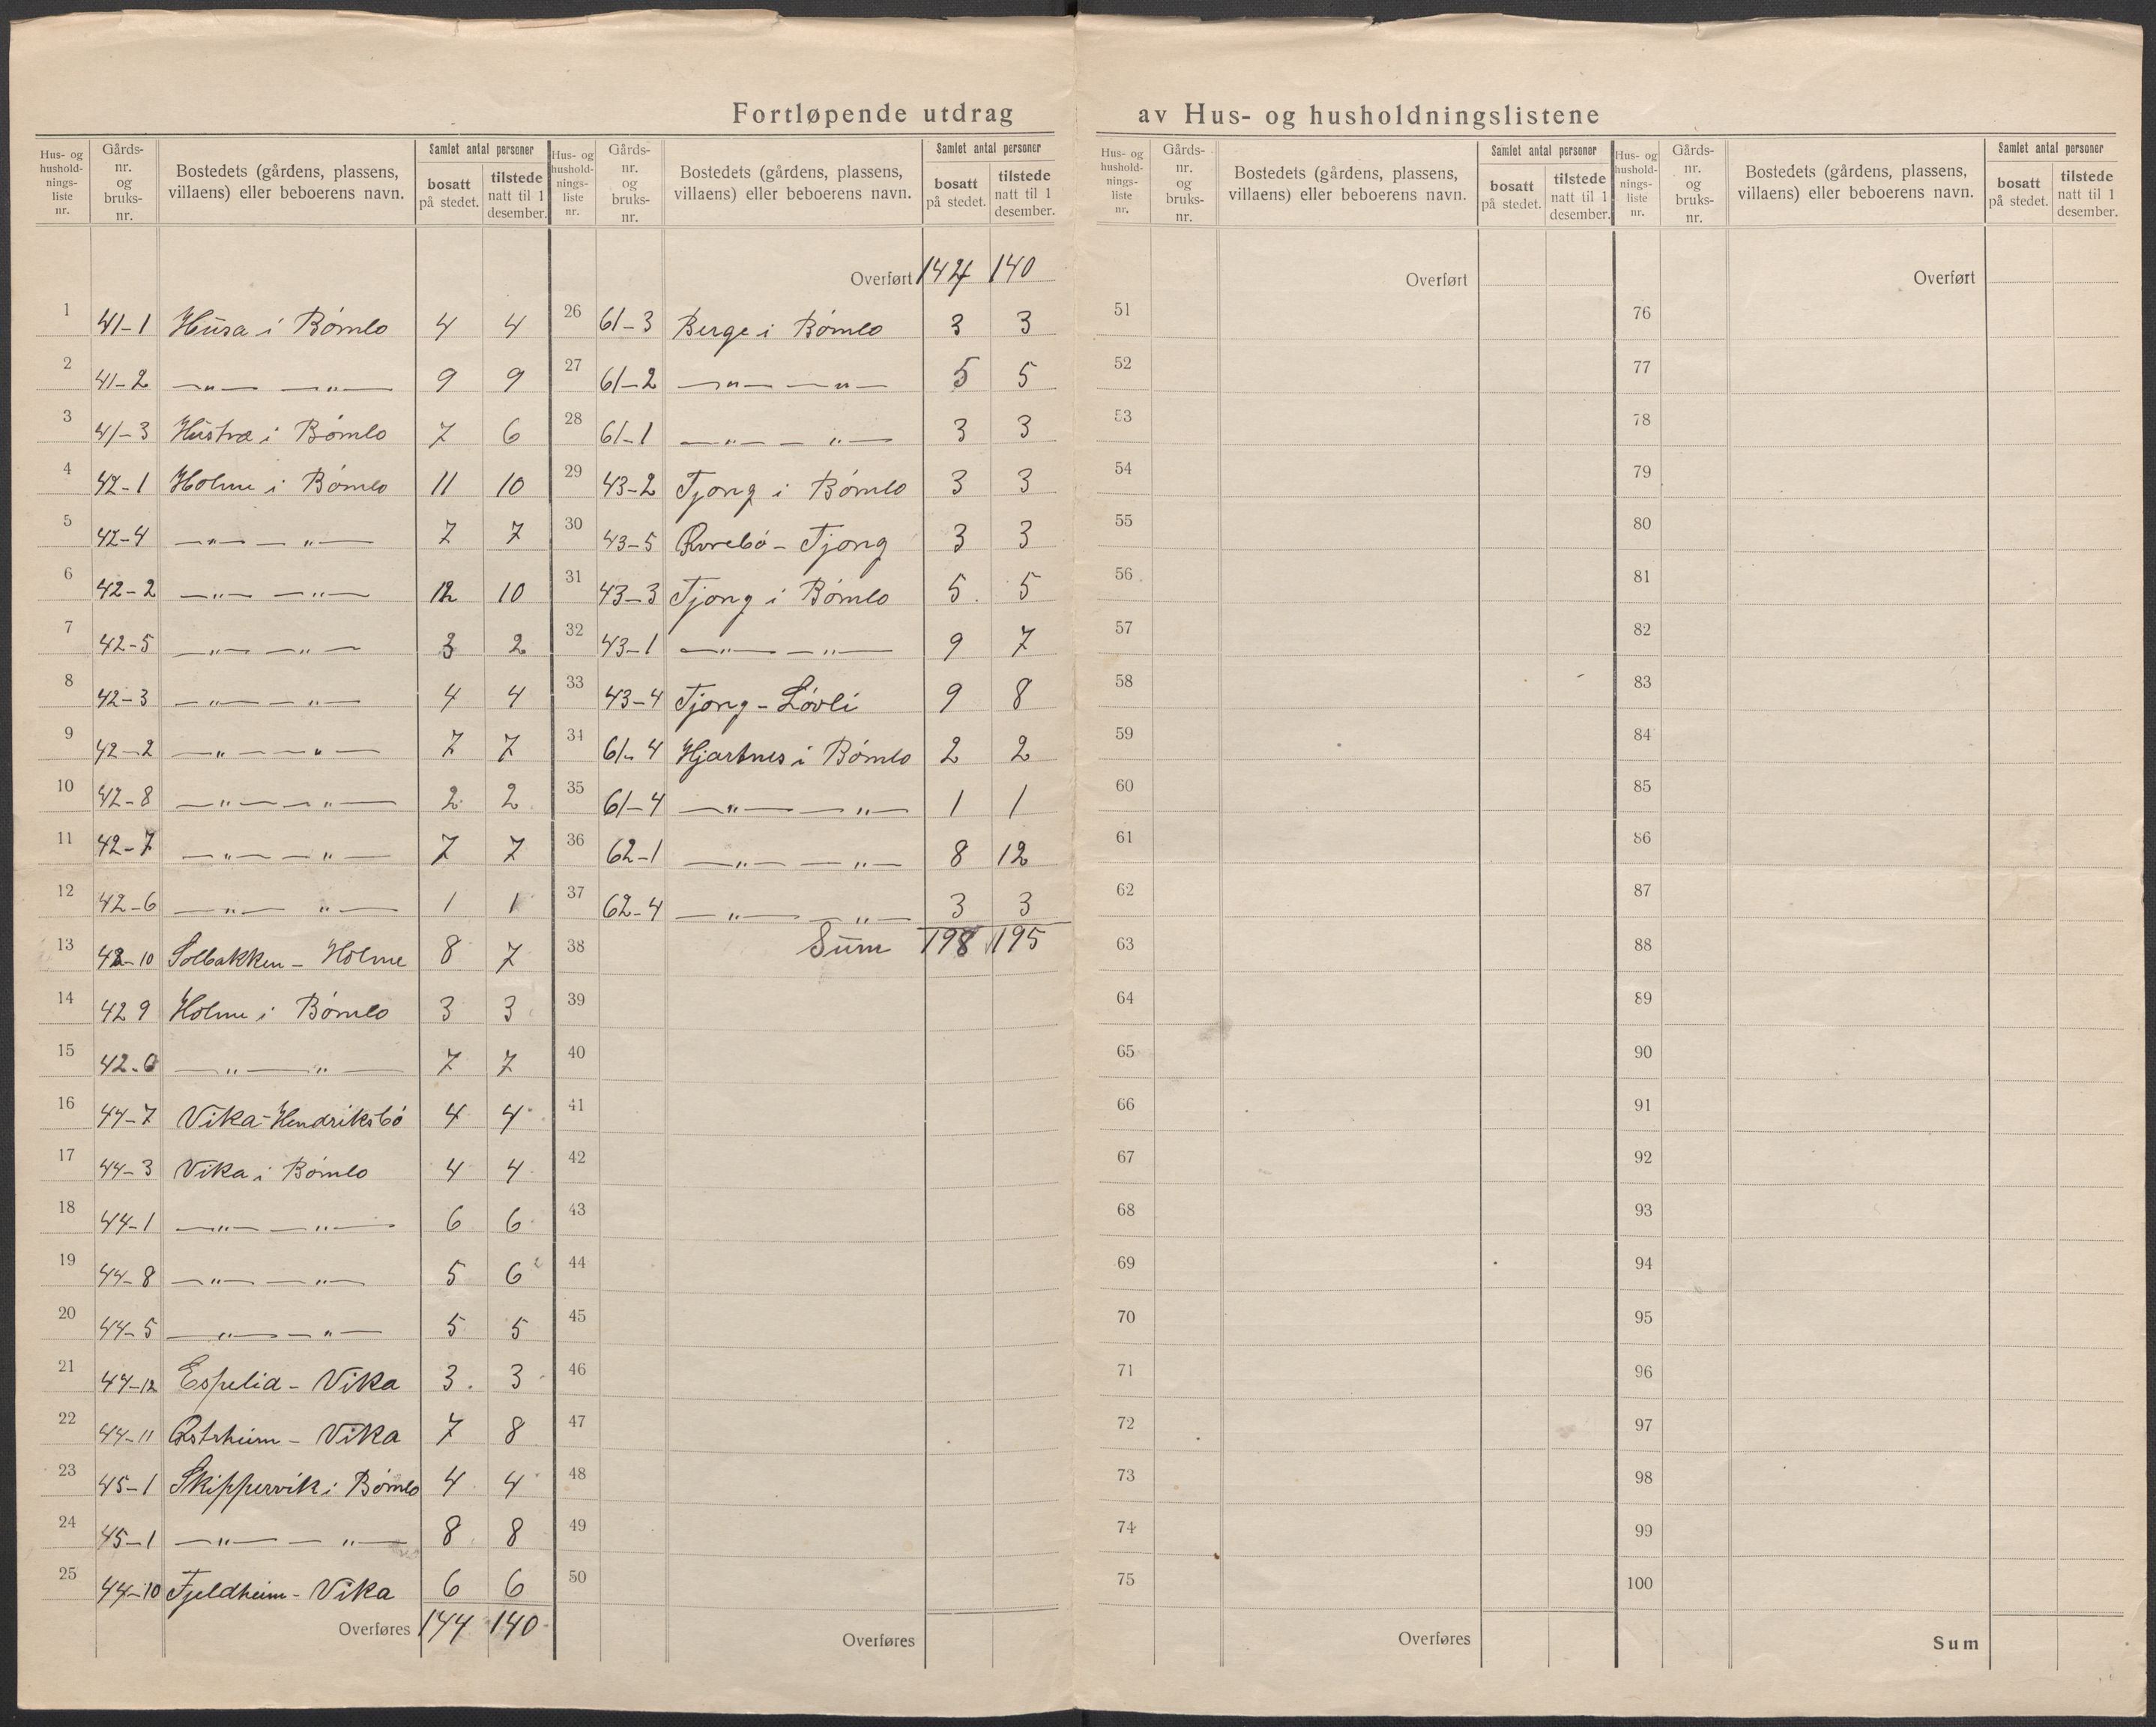 Fortløpende utdrag av Hus- og husholdningslistene
Hus- og husholdningsliste nr. | Gårdsnr. og bruksnr. | Bostedets (gårdens, plassens, villaens) eller beboerens navn. | Samlet antal personer: bosatt på stedet. | tilstede natt til 1 desember.
1 41-1 Husa i Bømlo 4 4
2 41-2 —"— —"— 9 9
3 41-3 Hustræ i Bømlo 7 6
4 42-1 Holme i Bømlo 11 10
5 42-4 —"— —"— 7 7
6 42-2 —"— —"— 12 10
7 42-5 —"— —"— 3 2
8 42-3 —"— —"— 4 4
9 42-2 —"— —"— 7 7
10 42-8 —"— —"— 2 2
11 42-7 —"— —"— 7 7
12 42-6 —"— "— 1 1
13 42-10 Solbakken - Holme 8 7
14 42 9 Holme i Bømlo 3 3
15 42-6 —"— "— 7 7
16 44-7 Vika-Hendriksbø 4 4
17 44-3 Vika i Bømlo 4 4
18 44-1 —"— —"— 6 6
19 44-8 —"— —"— 5 6
20 44-5 —"— —"— 5 5
21 44-12 Espelid - Vika 3 3
22 44-11 - Vika 7 8
23 45-1 Skippervik i Bømlo 4 4
24 45-1 —"— —"— 8 8
25 44-10 Fjeldheim - Vika 6 6
Overføres 144 140
Hus- og husholdningsliste nr. | Gårdsnr. og bruksnr. | Bostedets (gårdens, plassens, villaens) eller beboerens navn. | Samlet antal personer: bosatt på stedet. | tilstede natt til 1 desember.
Overført 144 140
26 61-3 Berge i Bømlo 3 3
27 61-2 —"— —"— 5 5
28 61-1 —"— —"— 3 3
29 43-2 Tjong i Bømlo 3 3
30 43-5 - Tjong 3 3
31 43-3 Tjong i Bømlo 5 5
32 43-1 —"— —"— 9 7
33 43-4 Tjong - Løvli 9 8
34 61-4 Hjartnes i Bømlo 2 2
35 61-4 —"— —"— 1 1
36 62-1 —"— —"— 8 12
37 62-4 —"— —"— 3 3
38 Sum 198 195
39
40
41
42
43
44
45
46
47
48
49
50
Overføres
Hus- og husholdningsliste nr. | Gårdsnr. og bruksnr. | Bostedets (gårdens, plassens, villaens) eller beboerens navn. | Samlet antal personer: bosatt på stedet. | tilstede natt til 1 desember.
Overført
51
52
53
54
55
56
57
58
59
60
61
62
63
64
65
66
67
68
69
70
71
72
73
74
75
Overføres
Hus- og husholdningsliste nr. | Gårdsnr. og bruksnr. | Bostedets (gårdens, plassens, villaens) eller beboerens navn. | Samlet antal personer: bosatt på stedet. | tilstede natt til 1 desember.
Overført
76
77
78
79
80
81
82
83
84
85
86
87
88
89
90
91
92
93
94
95
96
97
98
99
100
Sum